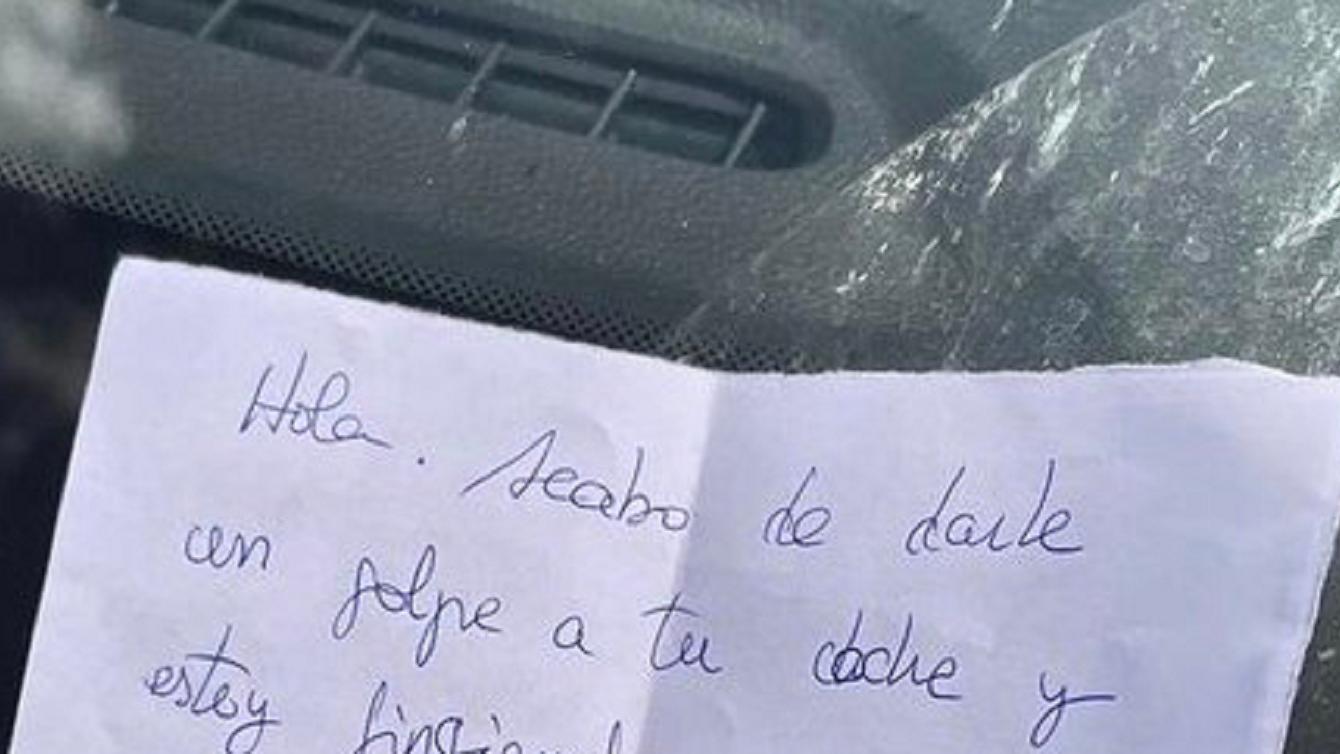 Hola. Acabo de darle
un golpe a tu coche y
estoy